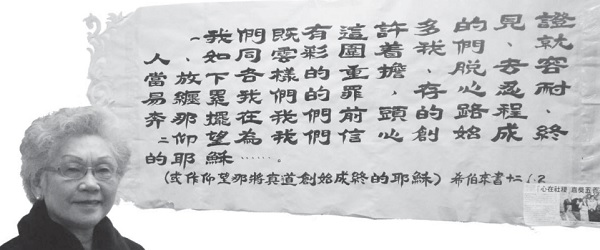 一我們既有這許多的見證
人、如同雲彩圍着我們、就
當放下各樣的重擔、脫去容
易纏累我們的罪、存心忍耐、
奔那擺在我們前頭的路程、
二仰望為我們信心創始成終
的耶穌……
(或作仰望那將真道創始成終的耶穌) 希伯來書十二1.2
心在社